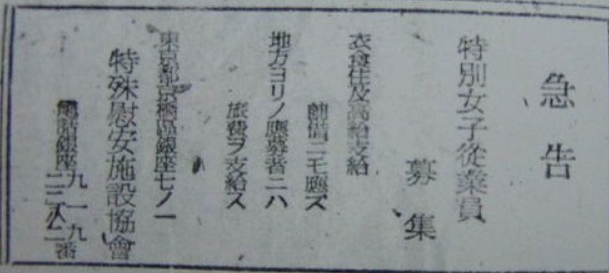 急告
特別女子從業員
募集
衣食住及高給支給
前借ニモ應ズ
地方ヨリノ應募者ニハ
旅費ヲ支給ス
東京都京橋區銀座七ノ一
特殊慰安施設協會
電話銀座
九一九番
二二八二